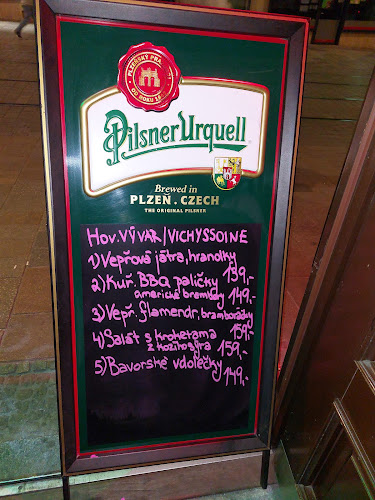 PLZEŇSKÝ PRAZDROJ
OD ROKU 1842
Pilsner Urquell
Brewed in
PLZEŇ . CZECH
THE ORIGINAL PILSNER
HOV. VÝVAR/VICHYSSOINE
1) Vepřová játra, hranolky
139,-
2) Kuř. BBQ paličky
americké brambory 149,-
3) Vepř. flamendr, bramboráčky
159,-
4) Salát s kroketama
z kozího sýra 159,-
5) Bavorské vdolečky
149,-